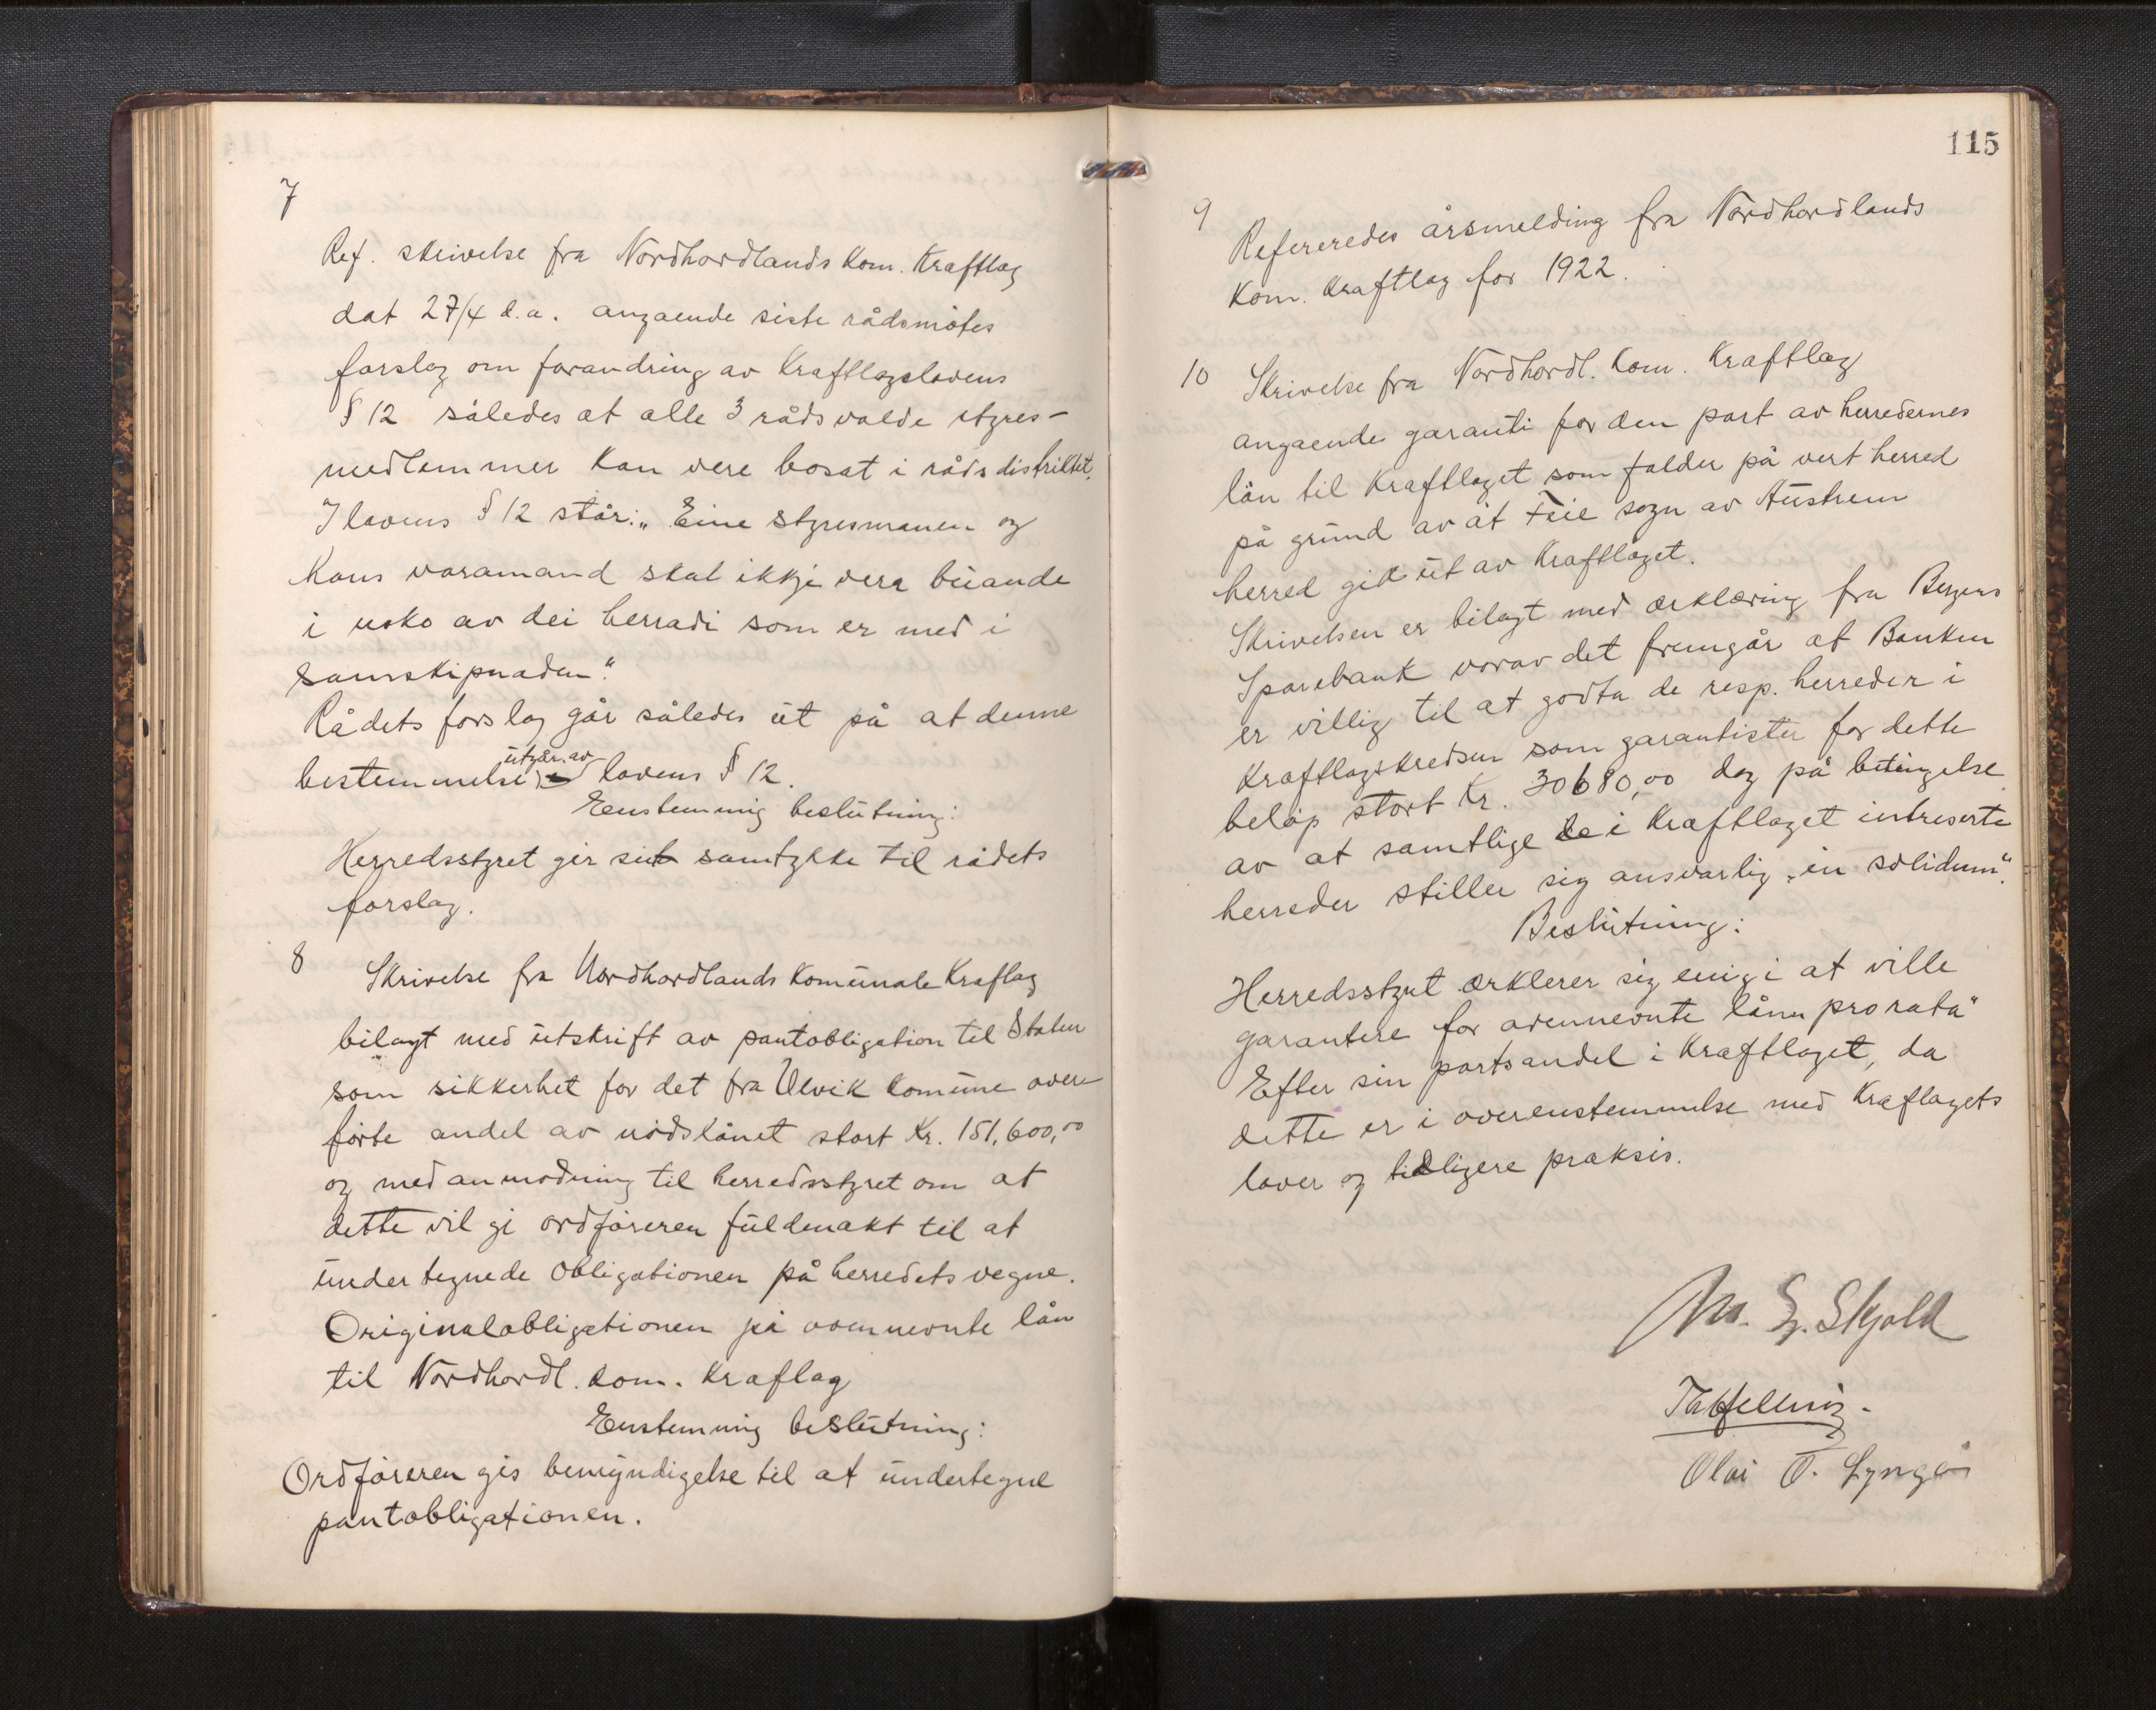 7
Ref. skrivelse fra Nordhordlands Kom. Kraftlag
dat 27/4 d.a. angaende siste rådsmøtes
forslag om forandring av Kraftlagslovens
§ 12 således at alle 3 rådsvalde styres-
medlemmer kan vere bosat i rådsdistriktet.
I lovens § 12 står: „Eine styresmanen og
hans varamand skal ikkje vera büande
i noko av dei herradi som er med i
samskipnaden".
Rådets forslag går således üt på at denne
bestemmelse ütgår av lovens § 12.
Enstemmig beslütning:
Herredsstyret gir sit samtykke til rådets
forslag.
8
Skrivelse fra Nordhordlands Komünale Kraflag
bilagt med ütskrift av pantobligation til Staten
som sikkerhet for det fra Ulvik Komüne over-
førte andel av nødslånet stort Kr. 151,600,00
og med anmodning til herredsstyret om at
dette vil gi ordføreren füldmakt til at
ündertegnede obligationen på herredets vegne.
Originalobligationen på ovennevnte lån
til Nordhordl. Kom. Kraflag
Enstemmig beslütning:
Ordføreren gis bemyndigelse til at ündertegne
pantobligationen.
115
9
Refereredes årsmelding fra Nordhordlands
Kom. Kraftlag for 1922.
10
Skrivelse fra Nordhordl. Kom. Kraftlag
angaende garanti for den part av herredernes
lån til Kraftlaget som falder på vert herred
på gründ av at Feie sogn av Aüstrem
herred gik üt av Kraftlaget.
Skrivelsen er bilagt med ærklæring fra Bergens
Sparebank vorav det fremgår at Banken
er villig til at godta de resp. herreder i
Kraftlagskredsen som garantister for dette
beløp stort Kr. 30680,00 dog på betingelse
av at samtlige de i Kraftlaget intreserte
herreder stiller sig ansvarlig „in solidum".
Beslütning:
Herredsstyret ærklerer sig enig i at ville
garantere for ovennevnte lån „pro rata"
Efter sin partsandel i Kraftlaget, da
dette er i overenstemmelse med Kraflagets
lover og tidligere praksis.
M. G. Skjold
Olai O. Lyngø